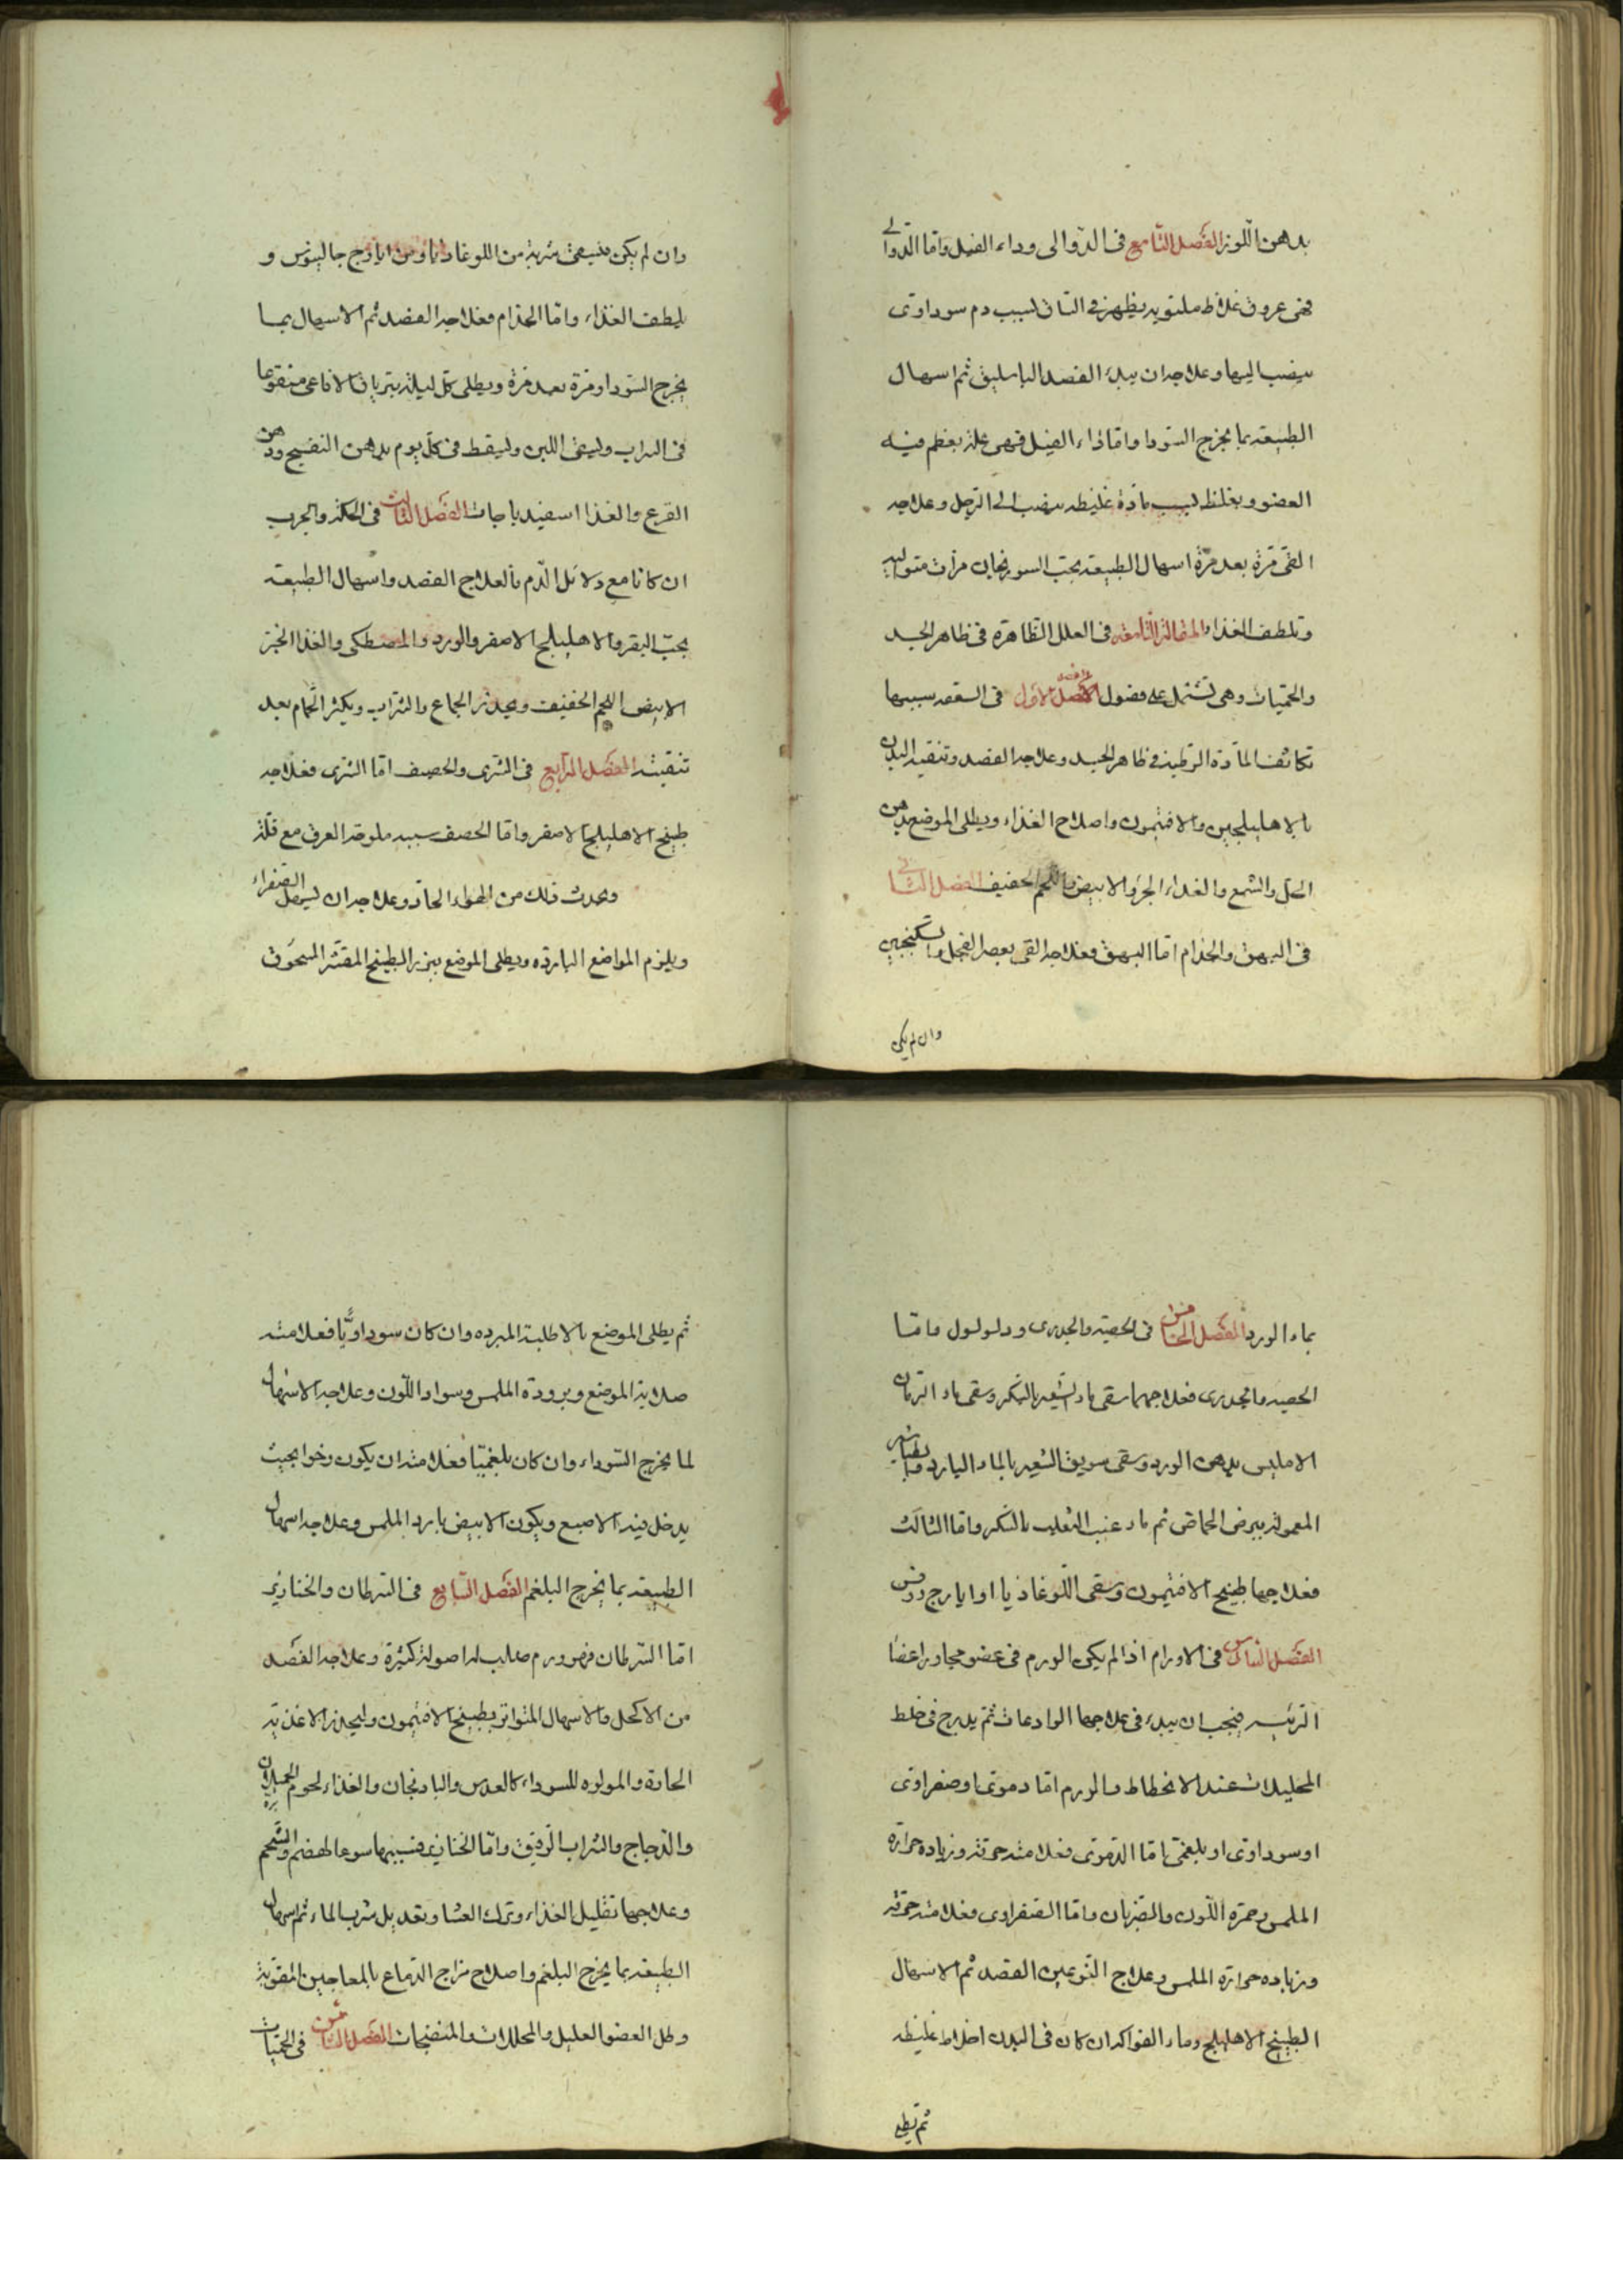 بدهن اللوز الفصل التاسع فى الدوالى وداء الفيل واما الدوالے
فهى عروق غلاظ ملتويه يظهر فى الساق لسبب دم سوداوى
ينصب اليها وعلاجه ان يبدء الفصد الباسليق ثم اسهال
الطبيعه بما يخرج السودا واما داء الفيل فهى علة يعظم فيه
العضو ويغلظ لسبب مادة غليظه ينصب الى الرجل وعلاجه
القى مرة بعد مرة اسهال الطبيعه بحب السورنجان مرات متواليه
وتلطف الغذاء المقالة الثامنه فى العلل الظاهرة فى ظاهر الجسد
والحميات وهى تشتمل على فصول الفصل الاول فى السعفه سببها
تكاثف المادة الرطبة فى ظاهر الجسد وعلاجه الفصد وتنقية البدن
بالاهليلجين والافتيمون واصلاح الغذاء ويطلى الموضع بدهن
الخل والشمع والغداء الخبز والابيض واللحم الخفيف الفصل الثانى
فى البهق والجذام اما البهق فعلاجه القى بعصر الفجل والسكنجبين
وان لم يكن
وان لم يكن فليسقى شربة من اللوغاديا او من ايارج جالينوس و
يلطف الغذاء واما الجذام فعلاجه الفصد ثم الاسهال بما
يخرج السوداو مرة بعد مرة ويطلى كل ليلة بترياق الافاعى منقوعا
فى الشراب وليسقى اللبن وليقط فى كل يوم بدهن البنفسج ودهن
القرع والغذا اسفيدباجات الفصل الثالث فى الحكة والجرب
ان كانا مع دلائل الدم فالعلاج الفصد واسهال الطبيعه
بحب البقر والاهليلج الاصفر والورد والمصطكى والغذا الخبز
الابيض اللحم الخفيف ويحذر الجماع والشراب ويكثر الحمام بعد
تنقيته الفصل الرابع فى الشرى والحصف اما الشرى فعلاجه
طبيخ الاهليلج الاصفر واما الحصف سببه ملوحة العرق مع قلة
ويحدث ذلك من الهواء الحار وعلاجه ان ليسهل الصفراء
ويلزم المواضع البارده ويطلى الموضع ببزر البطيخ المقشر المسحوق
بماء الورد الفصل الخامس فى الحصبه والجدرى ود لولول واما
الحصبه والجدرى فعلاجهما سقى ماء الشعير بالسكر وسقى ماء الرمان
الامليس بدهن الورد وسقى سويق الشعير بالماء البارد وبا
المعمولة ببرض الحماض ثم ماء عنب الثعلب بالسكر واما الثالث
فعلاجها طبيخ الافتيمون وسقى اللوغاذيا او ايارج روفس
الفصل السادس فى الاورام اذا لم يكن الورم فى عضو مجاور اعضا
الرئيسه فيجب ان يبدء فى علاجها الرادعات ثم يدرج فى خلط
المحليلات عند الانحطاط والورم اما دموى او صفراوى
او سوداوى او بلغمى اما الدموى فعلامته حمرته وزياده حرارة
الملمس وحمرة اللون والضربان واما الصفراوى فعلامته حرقته
وزياده حرارة الملمس وعلاج النوعين الفصد ثم الاسهال
الطبيخ الاهليلج وماء الفواكه ان كان فى البدن اخلاط غليظه
ثم يطلى
ثم يطلى الموضع بالاطلية المبرده وان كان سوداويا فعلامته
صلابة الموضع وبرودة الملمس وسواد اللون وعلاجه الاسهال
لما يخرج السوداء وان كان بلغميا فعلامته ان يكون رخوا بحيث
يدخل فيه الاصبع ويكون الابيض بارد الملمس وعلاجه اسهال
الطبيعه بما يخرج البلغم الفصل السابع فى السرطان والخنازير
اما السرطان فهو ورم صلب له اصولة كثيرة وعلاجه الفصد
من الاكحل والاسهال المتواتر بطبيخ الافتيمون وليحذر الاغذية
الحارة والمولده للسوداء كالعدس والبادنجان والغذاء لحوم الحملان
والدجاج والشراب الرقيق واما الخنازير فسببها سوء الهضم والشحم
وعلاجها تقليل الغذاء وترك العشا وتعديل شرب الماء ثم اسهال
الطبيعه بما يخرج البلغم واصلاح مزاج الدماع بالمعاجين المقوية
وطل العضو العليل والمحللات والمنضجات الفصل الثامن فى الحميات